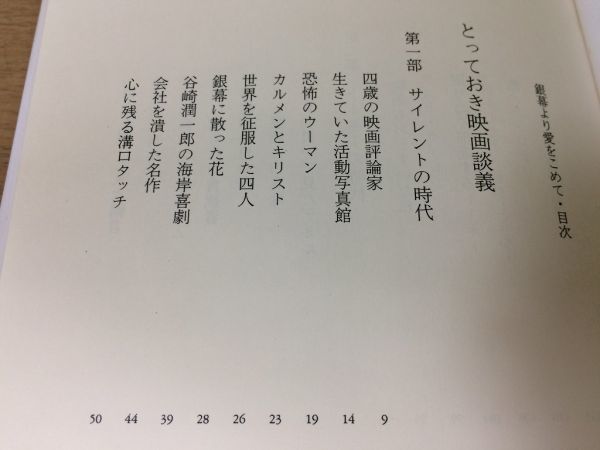 銀幕より愛をこめて・目次
とっておき映画談義
第一部 サイレントの時代
四歳の映画評論家 9
生きていた活動写真館 14
恐怖のウーマン 19
カルメンとキリスト 23
世界を征服した四人 26
銀幕に散った花 28
谷崎潤一郎の海岸喜劇 39
会社を潰した名作 44
心に残る溝口タッチ 50